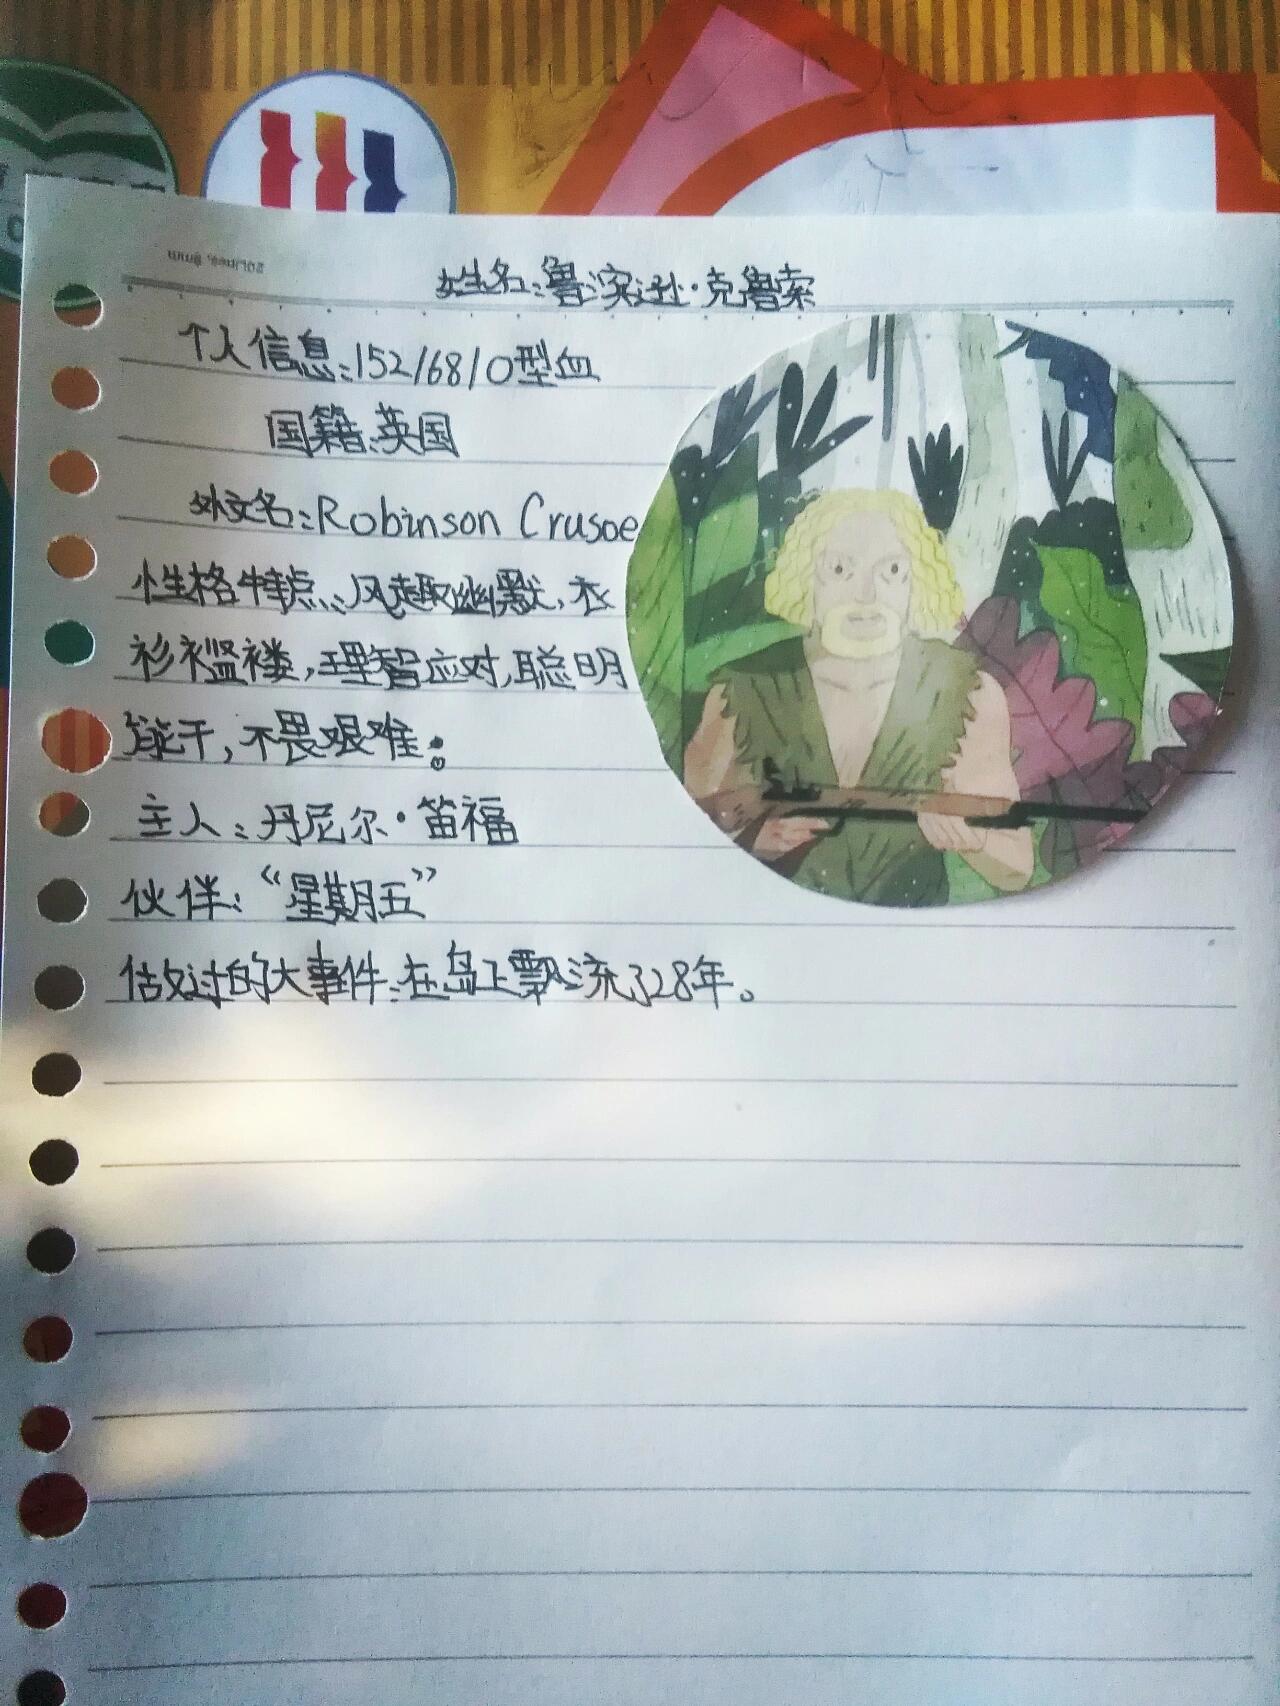 20Lines, 8mm
姓名:鲁滨逊·克鲁索
个人信息:152/68/O型血
国籍:英国
外文名:Robinson Crusoe
性格特点:风趣幽默,衣
衫褴褛,理智应对,聪明
能干,不畏艰难。
主人:丹尼尔·笛福
伙伴:“星期五”
做过的大事件:在岛上飘流了28年。